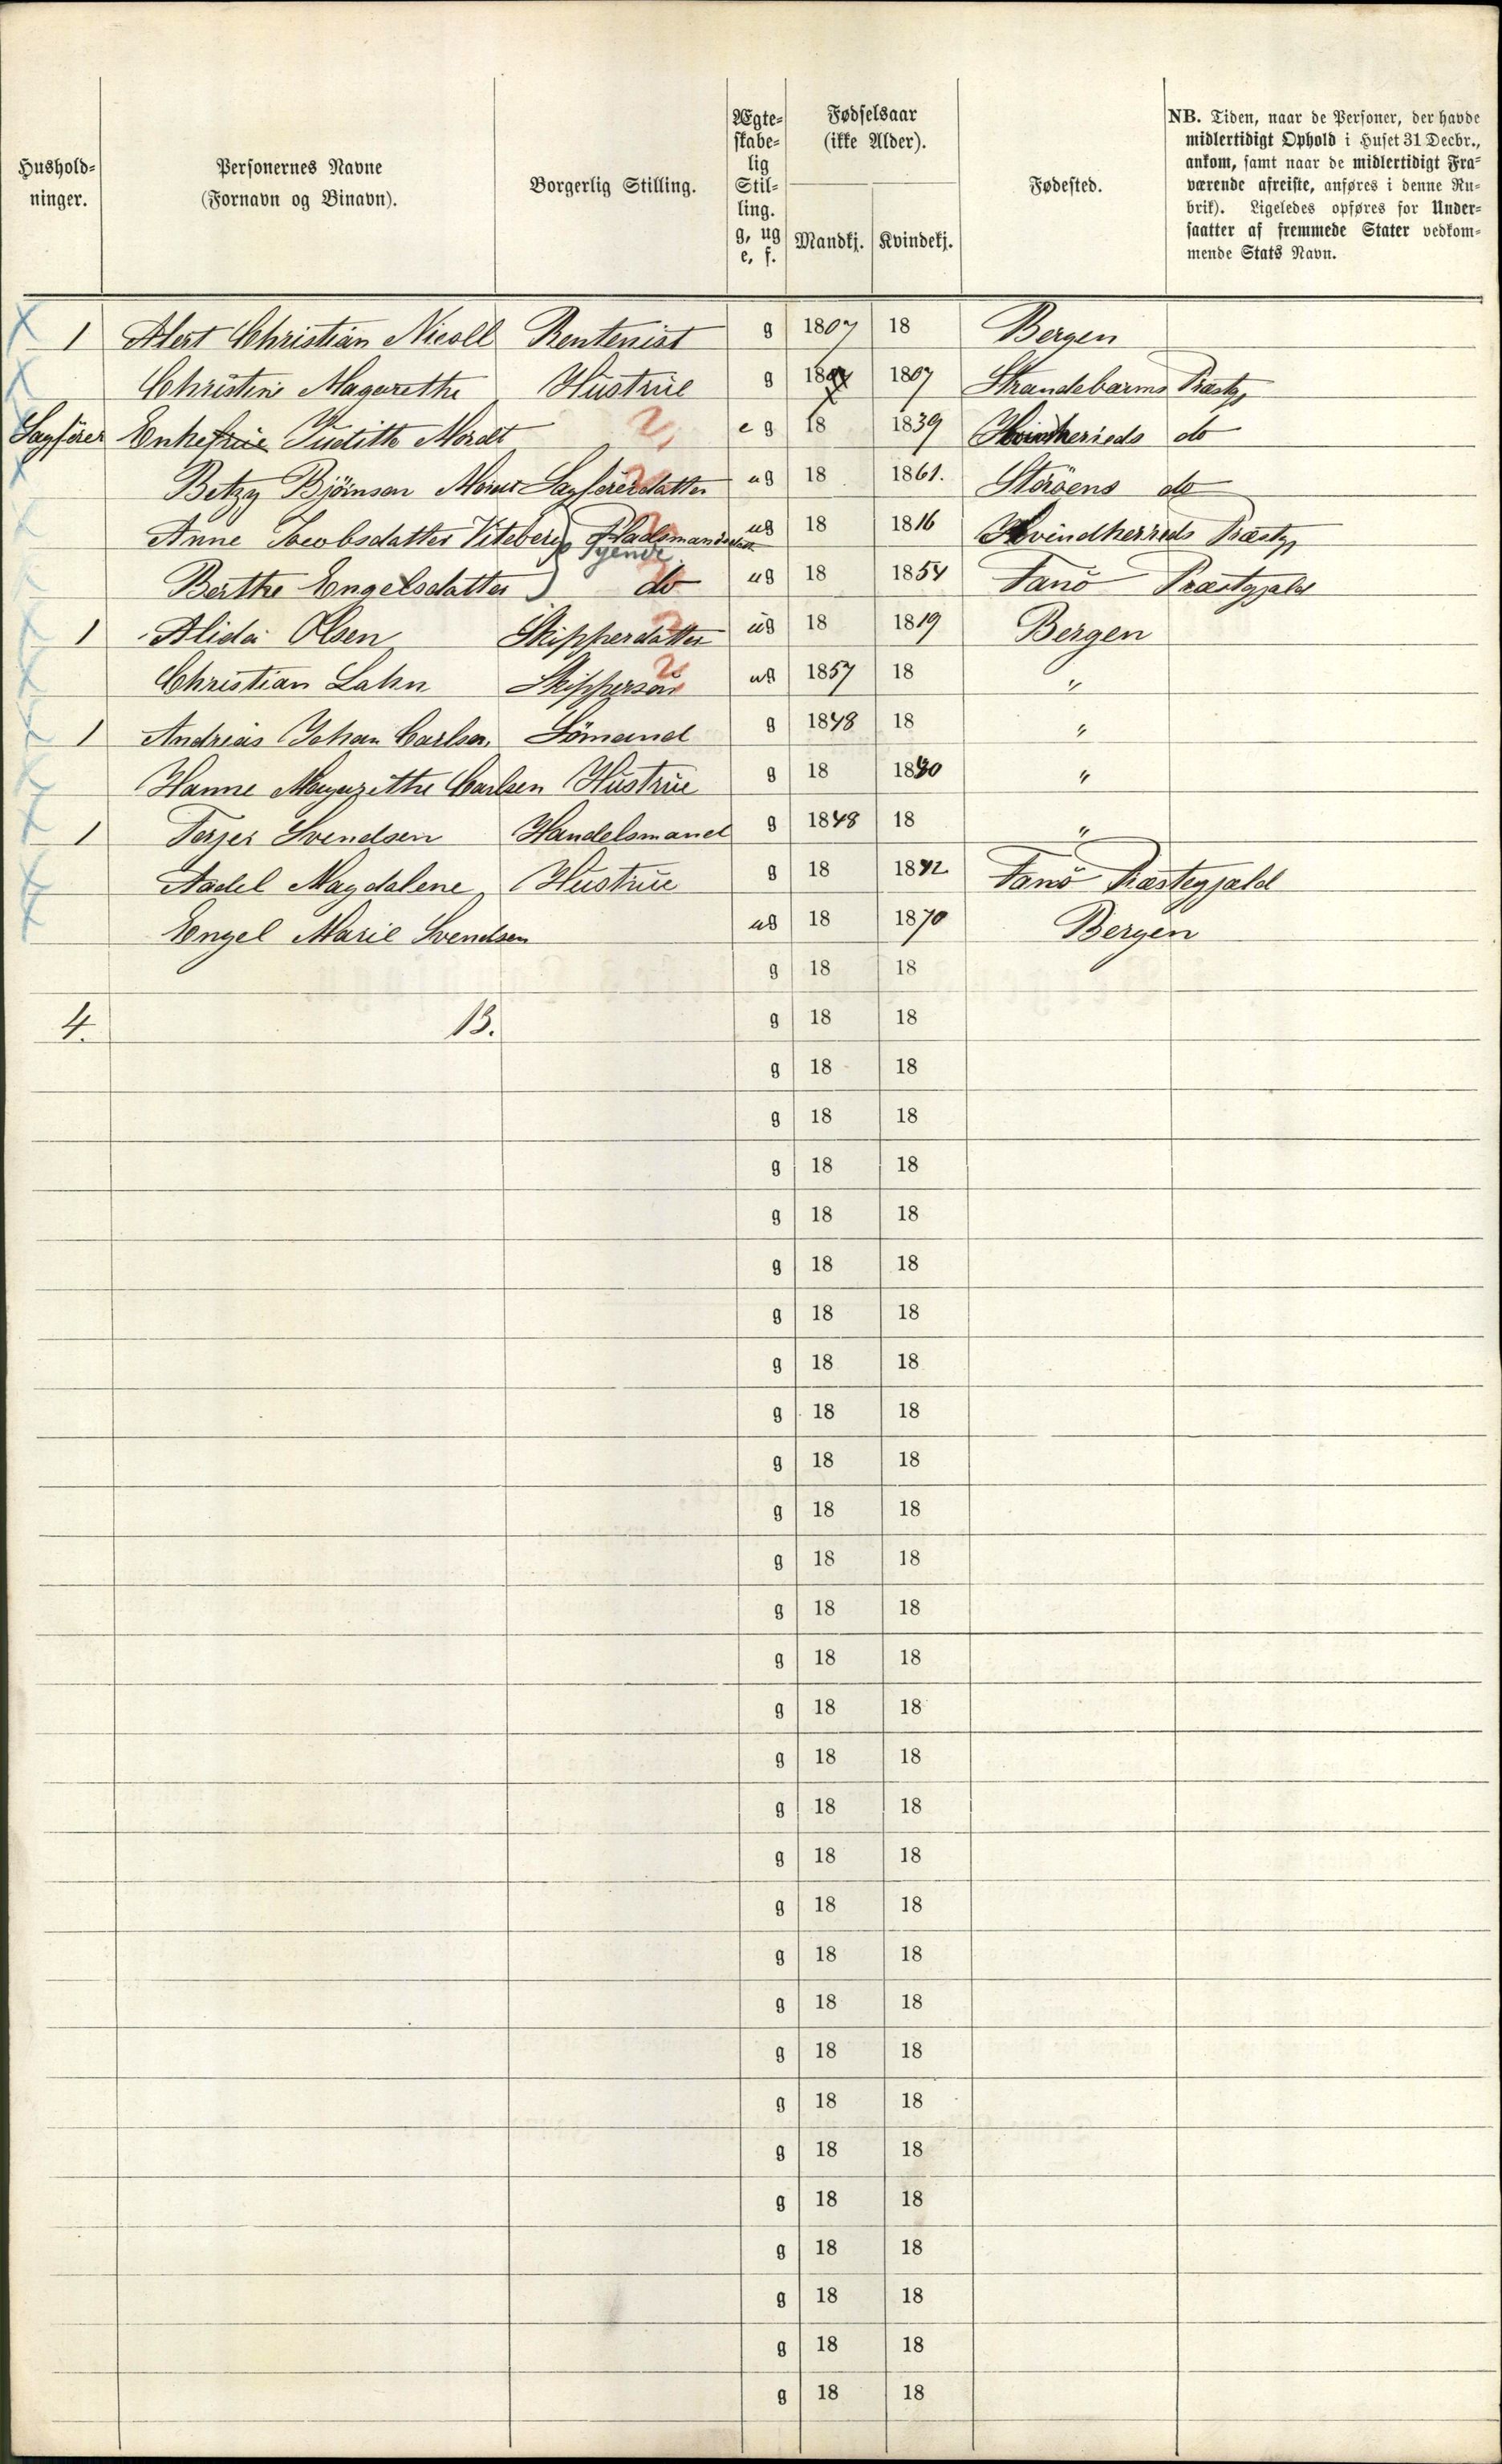 Hushold-
ninger.
Personernes Navne
(Fornavn og Binavn).
Borgerlig Stilling.
Ægte-
skabe-
lig
Stil-
ling.
g, ug
e, f.
Fødselsaar
(ikke Alder).
Mandkj. Kvindekj.
Fødested.
NB. Tiden, naar de Personer, der havde
midlertidigt Ophold i Huset 31 Decbr.,
ankom, samt naar de midlertidigt Fra-
værende afreiste, anføres i denne Ru-
brik). Ligeledes opføres for Under-
saatter af fremmede Stater vedkom-
mende Stats Navn.
1 Alert Christian Nicoll Rentenist g 1807 18 Bergen
Christine Magarethe Hustrue g 1807 Strandebarms Præstgj
Sagfører Enkefrue Juditte Mordt e g 18 1839 Hvindherieds do
Betzy Bjørnson Sagførerdatter ug 18 1861. Störöens do
Anne Jacobsdatter Viteberg Pladsmandsdatt. Tyende ug 18 1816 Hvindherreds Præstgj
Berthe Engelsdatter do ug 18 1854 Fanö Præstgjald
1 Alida Olsen Skipperdatter ug 18 1819 Bergen
Christian Lahn Skippersøn ug 1857 18 "
1 Andreas Johan Carlsen Sömand g 1848 18 "
Hanne Magrethe Carlsen Hustrue g 18 "
1 Terjer Svendsen Handelsmand g 1848 18 "
Aadel Magdalene Hustrue g 18 1842 Fanö Præstegjald
Engel Marie Svendsen ug 18 1870 Bergen
g 18 18
4. 13. g 18 18
g 18 18
g 18 18
g 18 18
g 18 18
g 18 18
g 18 18
g 18 18
g 18 18
g 18 18
g 18 18
g 18 18
g 18 18
g 18 18
g 18 18
g 18 18
g 18 18
g 18 18
g 18 18
g 18 18
g 18 18
g 18 18
g 18 18
g 18 18
g 18 18
g 18 18
g 18 18
g 18 18
g 18 18